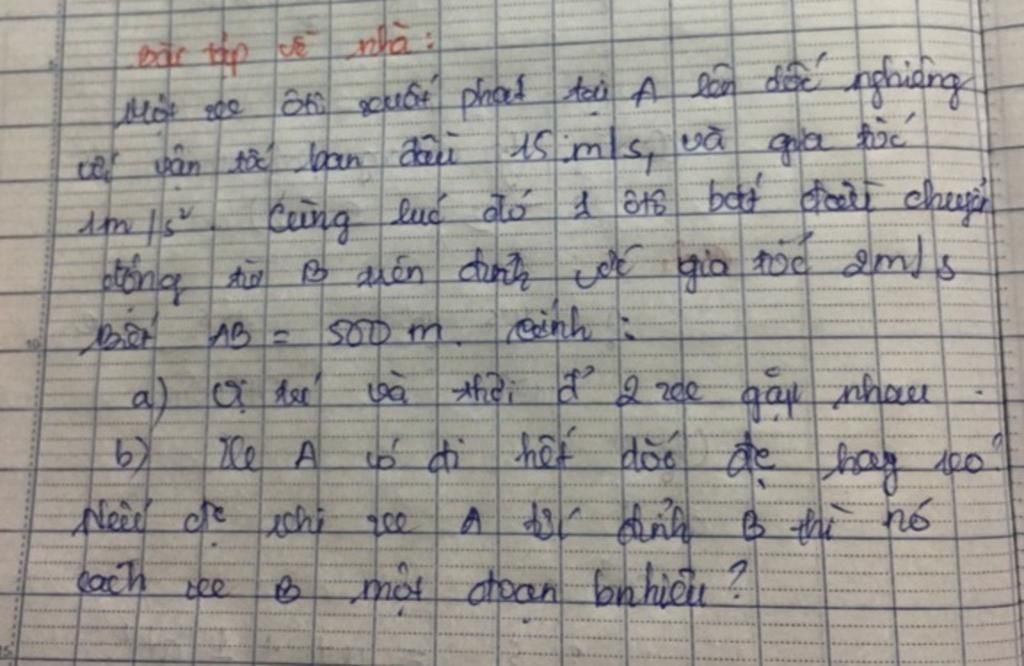 Bài tập về nhà:
Một xe ôtô xuất phát tại A lên dốc nghiêng
với vận tốc ban đầu 15 m/s, và gia tốc
1m/s². Cùng lúc đó 1 ôtô bắt đầu chuyển
động từ B xuống dưới với gia tốc 2m/s
Biết AB = 500 m. Tính:
a) Vị trí và thời đ² 2 xe gặp nhau.
b) Xe A có đi hết dốc đc hay ko?
Nếu đc khi xe A tới đỉnh B thì nó
cách xe B một đoạn bnhiêu?